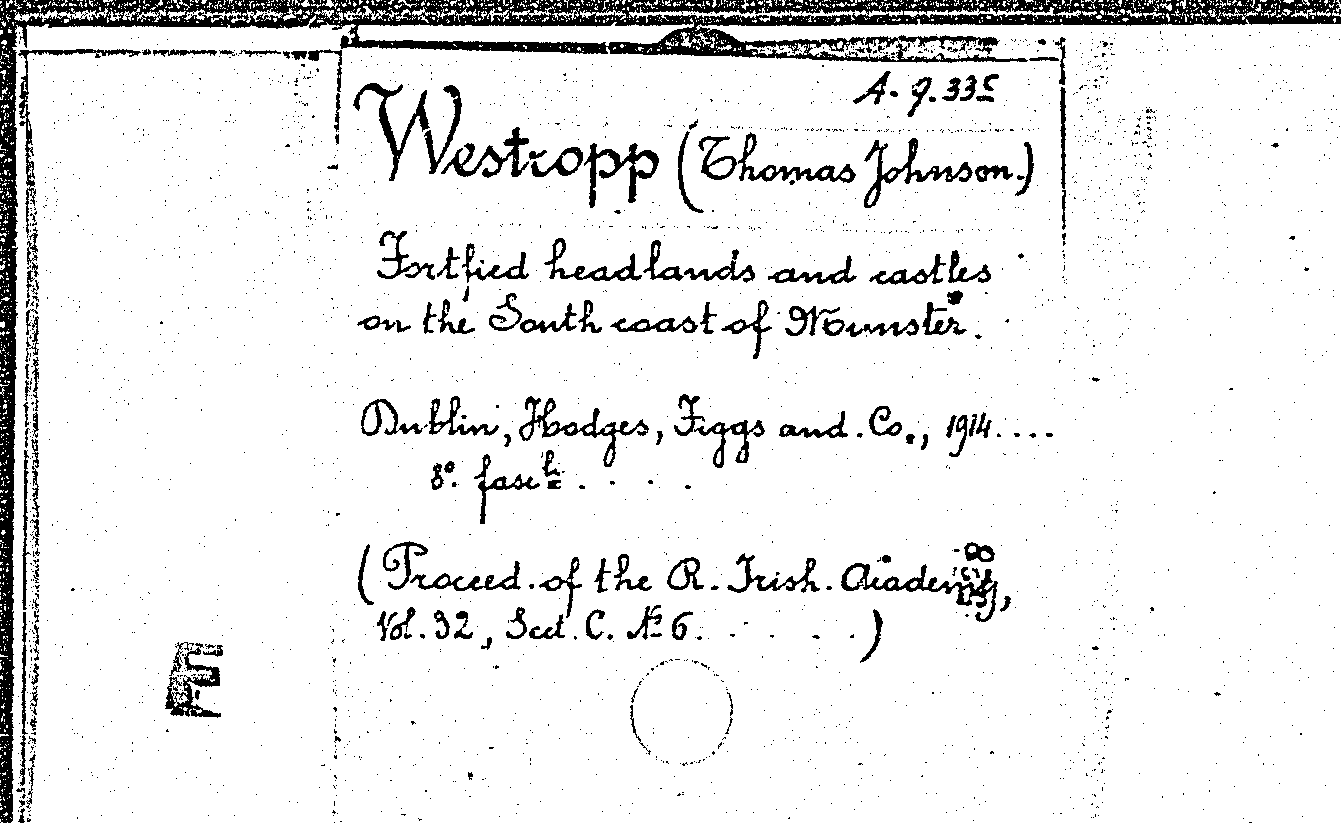 A. 9. 33ᶜ
Westropp (Thomas Johnson.)
Fortfied headlands and castles
on the South coast of Munster.
Dublin, Hodges, Figgs and. Co., 1914....
8°. fascˡᵉ. . . . .
(Proceed. of the R. Irish. Academy,
Vol. 32, Sect. C. Nº 6. . . . . .)
E